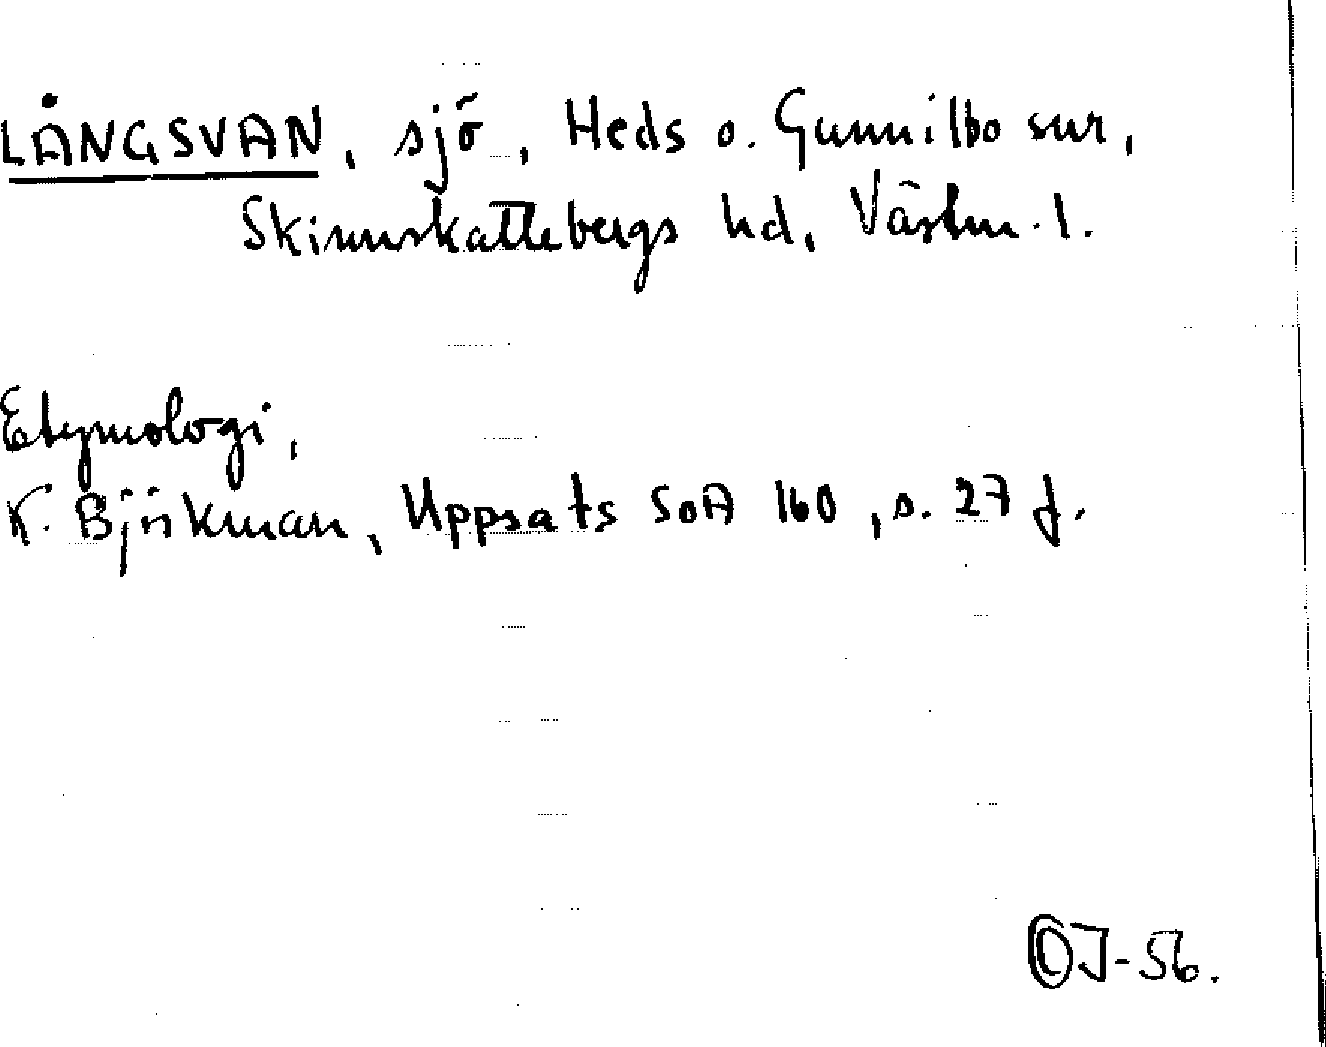 LÅNGSVAN, sjö, Heds o. Gunnilbo snr,
Skinnskattebergs hd, Västm. l.
Etymologi,
K. Björkman, Uppsats SOA 160, s. 27 f.
OJ-56.